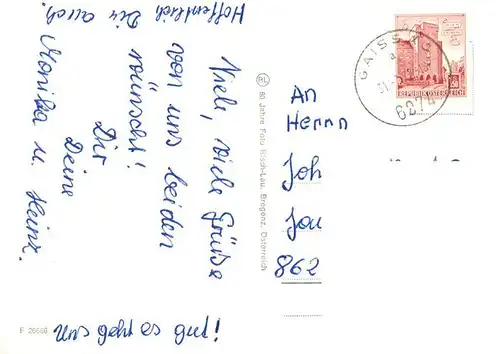 Viele, viele Grüße
von uns beiden
wünscht!
Dir
Deine
Monika u. Heinz.
Hoffentlich Dir auch.
Uns geht es gut!
F 26666
RL 80 Jahre Foto Risch-Lau, Bregenz, Österreich
An
Herrn
Joh
Jou
862
GAISSAU
6974
REPUBLIK ÖSTERREICH